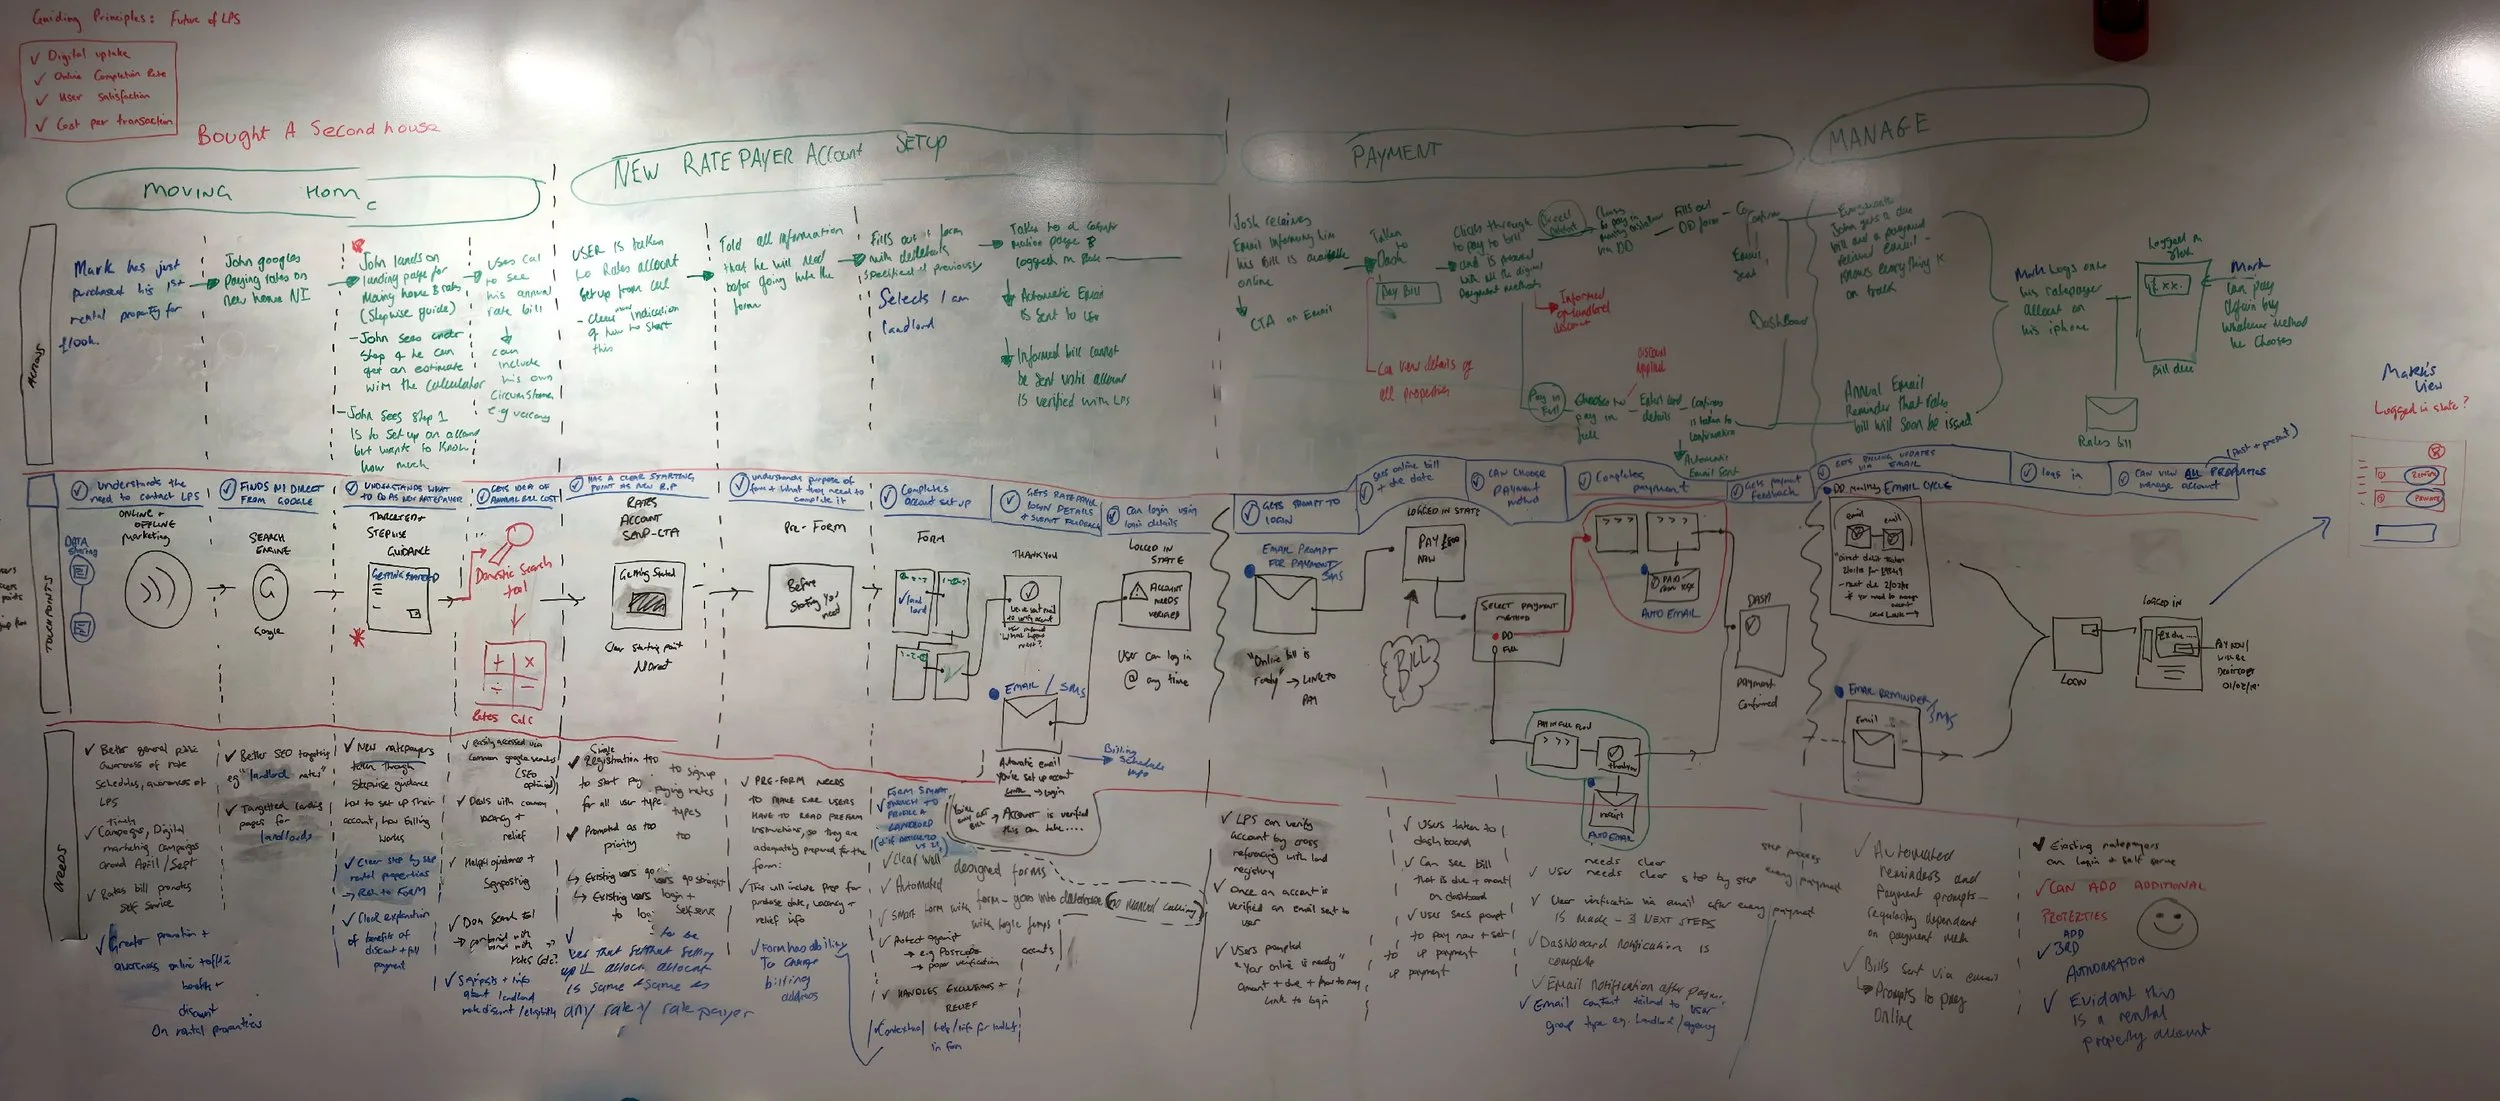 Guiding Principles: Future of LPS
✓ Digital uptake
✓ Online Completion Rate
✓ User satisfaction
✓ Cost per transaction
Bought A Second house
MOVING HOME
NEW RATEPAYER Account SETUP
PAYMENT
MANAGE
Mark has just
purchased his 1st
rental property for
£100k.
John googles
paying rates on
new home NI
John lands on
landing page for
Moving home & rates
(Stepwise guide)
- John sees under
Step 4 he can
get an estimate
with the calculator
- John sees step 1
is to set up an account
but wants to know
how much
uses cal
to see
his annual
rate bill
can
include
his own
circumstances
e.g vacancy
USER is taken
to Rates account
set up from
- Clear indication
of how to start
this
Told all information
that he will need
before going into the
form
Fills out form
with details
previously
Selects I am
landlord
Taken to a
page &
logged in state
Automatic Email
is sent to
Informed bill cannot
be sent until account
is verified with LPS
Josh receives
Email informing him
his Bill is available
online
CTA on Email
Taken
to
Dash
Pay Bill
Can view details of
all properties
Clicks through
to pay bill
and is presented
with all the digital
payment methods
Informed
of landlord
discount
Direct
debit
via DD
Fills out
DD form
Confirm
Email
sent
Dashboard
Pay in
Full
Chooses to
pay in
full
Discount
applied
Enters card
details
Confirms
is taken to
confirmation
Automatic
Email Sent
John gets a due
bill and a payment
received email -
knows everything is
on track
Annual Email
Reminder that rates
bill will soon be issued
Mark Logs onto
his ratepayer
account on
his iphone
Logged in
state
£xx.
Bill due
Rates bill
Mark
can pay
again by
whatever method
he chooses
Mark's
View
Logged in state?
understands the
need to contact LPS
FINDS NI DIRECT
FROM GOOGLE
UNDERSTANDS WHAT
TO DO AS NEW RATEPAYER
GETS IDEA OF
ANNUAL BILL COST
HAS A CLEAR STARTING
POINT AS NEW R.P
understands purpose of
form + what they need to
complete it
Completes
account set up
GETS RATEPAYER
LOGIN DETAILS
+ SUBMIT FEEDBACK
Can login using
login details
GETS PROMPT TO
LOGIN
gets online bill
+ due date
CAN CHOOSE
PAYMENT
method
Completes
payment
Gets payment
feedback
GETS BILLING UPDATES
VIA EMAIL
logs in
CAN VIEW ALL PROPERTIES
manage account
(past + present)
TOUCHPOINTS
DATA
sharing
ONLINE +
OFFLINE
Marketing
SEARCH
ENGINE
G
Google
TARGETED +
STEPWISE
GUIDANCE
GETTING STARTED
Domestic Search
tool
Rates Calc
RATES
ACCOUNT
SEND-CTA
Getting Started
Clear starting point
NIDirect
PRE-FORM
Before
Starting You
need
FORM
✓ land
lord
THANKYOU
EMAIL / SMS
Automatic email
you've set up account
Link → login
Billing
Schedule
info
LOGGED IN
STATE
ACCOUNT
NEEDS
VERIFIED
User can log in
@ any time
EMAIL PROMPT
FOR PAYMENT/
SMS
"Online bill is
ready" → LINK TO
PAY
LOGGED IN STATE
PAY £800
NOW
BILL
SELECT PAYMENT
METHOD
DD
FULL
AUTO EMAIL
PAY IN FULL FLOW
thankyou
receipt
AUTO EMAIL
DASH
PAYMENT
Confirmed
DD Monthly EMAIL CYCLE
email
email
EMAIL REMINDER/
SMS
Email
LOGIN
LOGGED IN
PAY NOW/
WILL BE
01/02/18
NEEDS
✓ Better general public
awareness of rate
schedules, awareness of
LPS
timely
✓ Campaigns, Digital
marketing campaigns
around April/Sept
✓ Rates bill promotes
self service
✓ Greater promotion +
awareness online + offline
benefits +
discount
On rental properties
✓ Better SEO targeting
eg "landlord rates"
✓ Targetted landing
pages for
landlords
✓ New ratepayers
taken through
Stepwise guidance
how to set up their
account, how billing
works
✓ Clear step by step
rental properties
→ Rely to FORM
✓ Clear explanation
of benefits of
discount + full
payment
✓ Easily accessed via
common google searches
(SEO
optimised)
✓ Deals with
vacancy +
relief
✓ Helpful guidance +
Signposting
✓ Signposts + info
about landlord
rate discount/eligibility
Single
✓ Registration
to start pay
for all user type
to signup
paying rates
types
✓ Promoted as too
priority
too
↳ Existing users go straight
↳ Existing users login +
to login
Self serve
up LL account
is same as
any rate payer
✓ PRE-FORM NEEDS
TO MAKE SURE USERS
HAVE TO READ PREFORM
Instructions, so they are
adequately prepared for the
form:
✓ This will include Prep for
purchase date, vacancy +
relief info
✓ Form has ability
to change
billing
address
FORM SMART
ENOUGH TO
PROFILE A
LANDLORD
→ Account is verified
this can take.....
✓ Clear well designed forms
✓ Automated
✓ SMART form with form - goes into database (no manual calling)
with logic jumps
✓ Protect against
→ e.g Postcode
→ proper verification
✓ HANDLES EXCLUSIONS +
RELIEF
✓ Contextual help/info for landlords
in form
✓ LPS can verify
account by cross
referencing with land
registry
✓ Once an account is
verified an email sent to
user
✓ Users prompted
"Your online is ready"
amount + due + how to pay
Link to login
✓ Users taken to
dashboard
✓ Can see bill
that is due + amount
on dashboard
✓ Users sees prompt
to pay now + set
up payment
needs clear
✓ User needs clear step by step
step process
every payment
✓ User verification via email after every payment
IS MADE - 3 NEXT STEPS
✓ Dashboard notification is
complete
✓ Email notification after payment
✓ Email content tailored to user
group type e.g. landlord/agency
✓ Automated
reminders and
Payment prompts -
regularly dependent
on payment meth
✓ Bills sent via email
↳ Prompts to pay
online
✓ Existing ratepayers
can login + self serve
✓ CAN ADD ADDITIONAL
PROPERTIES
ADD
✓ 3RD
AUTHORISATION
✓ Evidant this
is a rental
property account